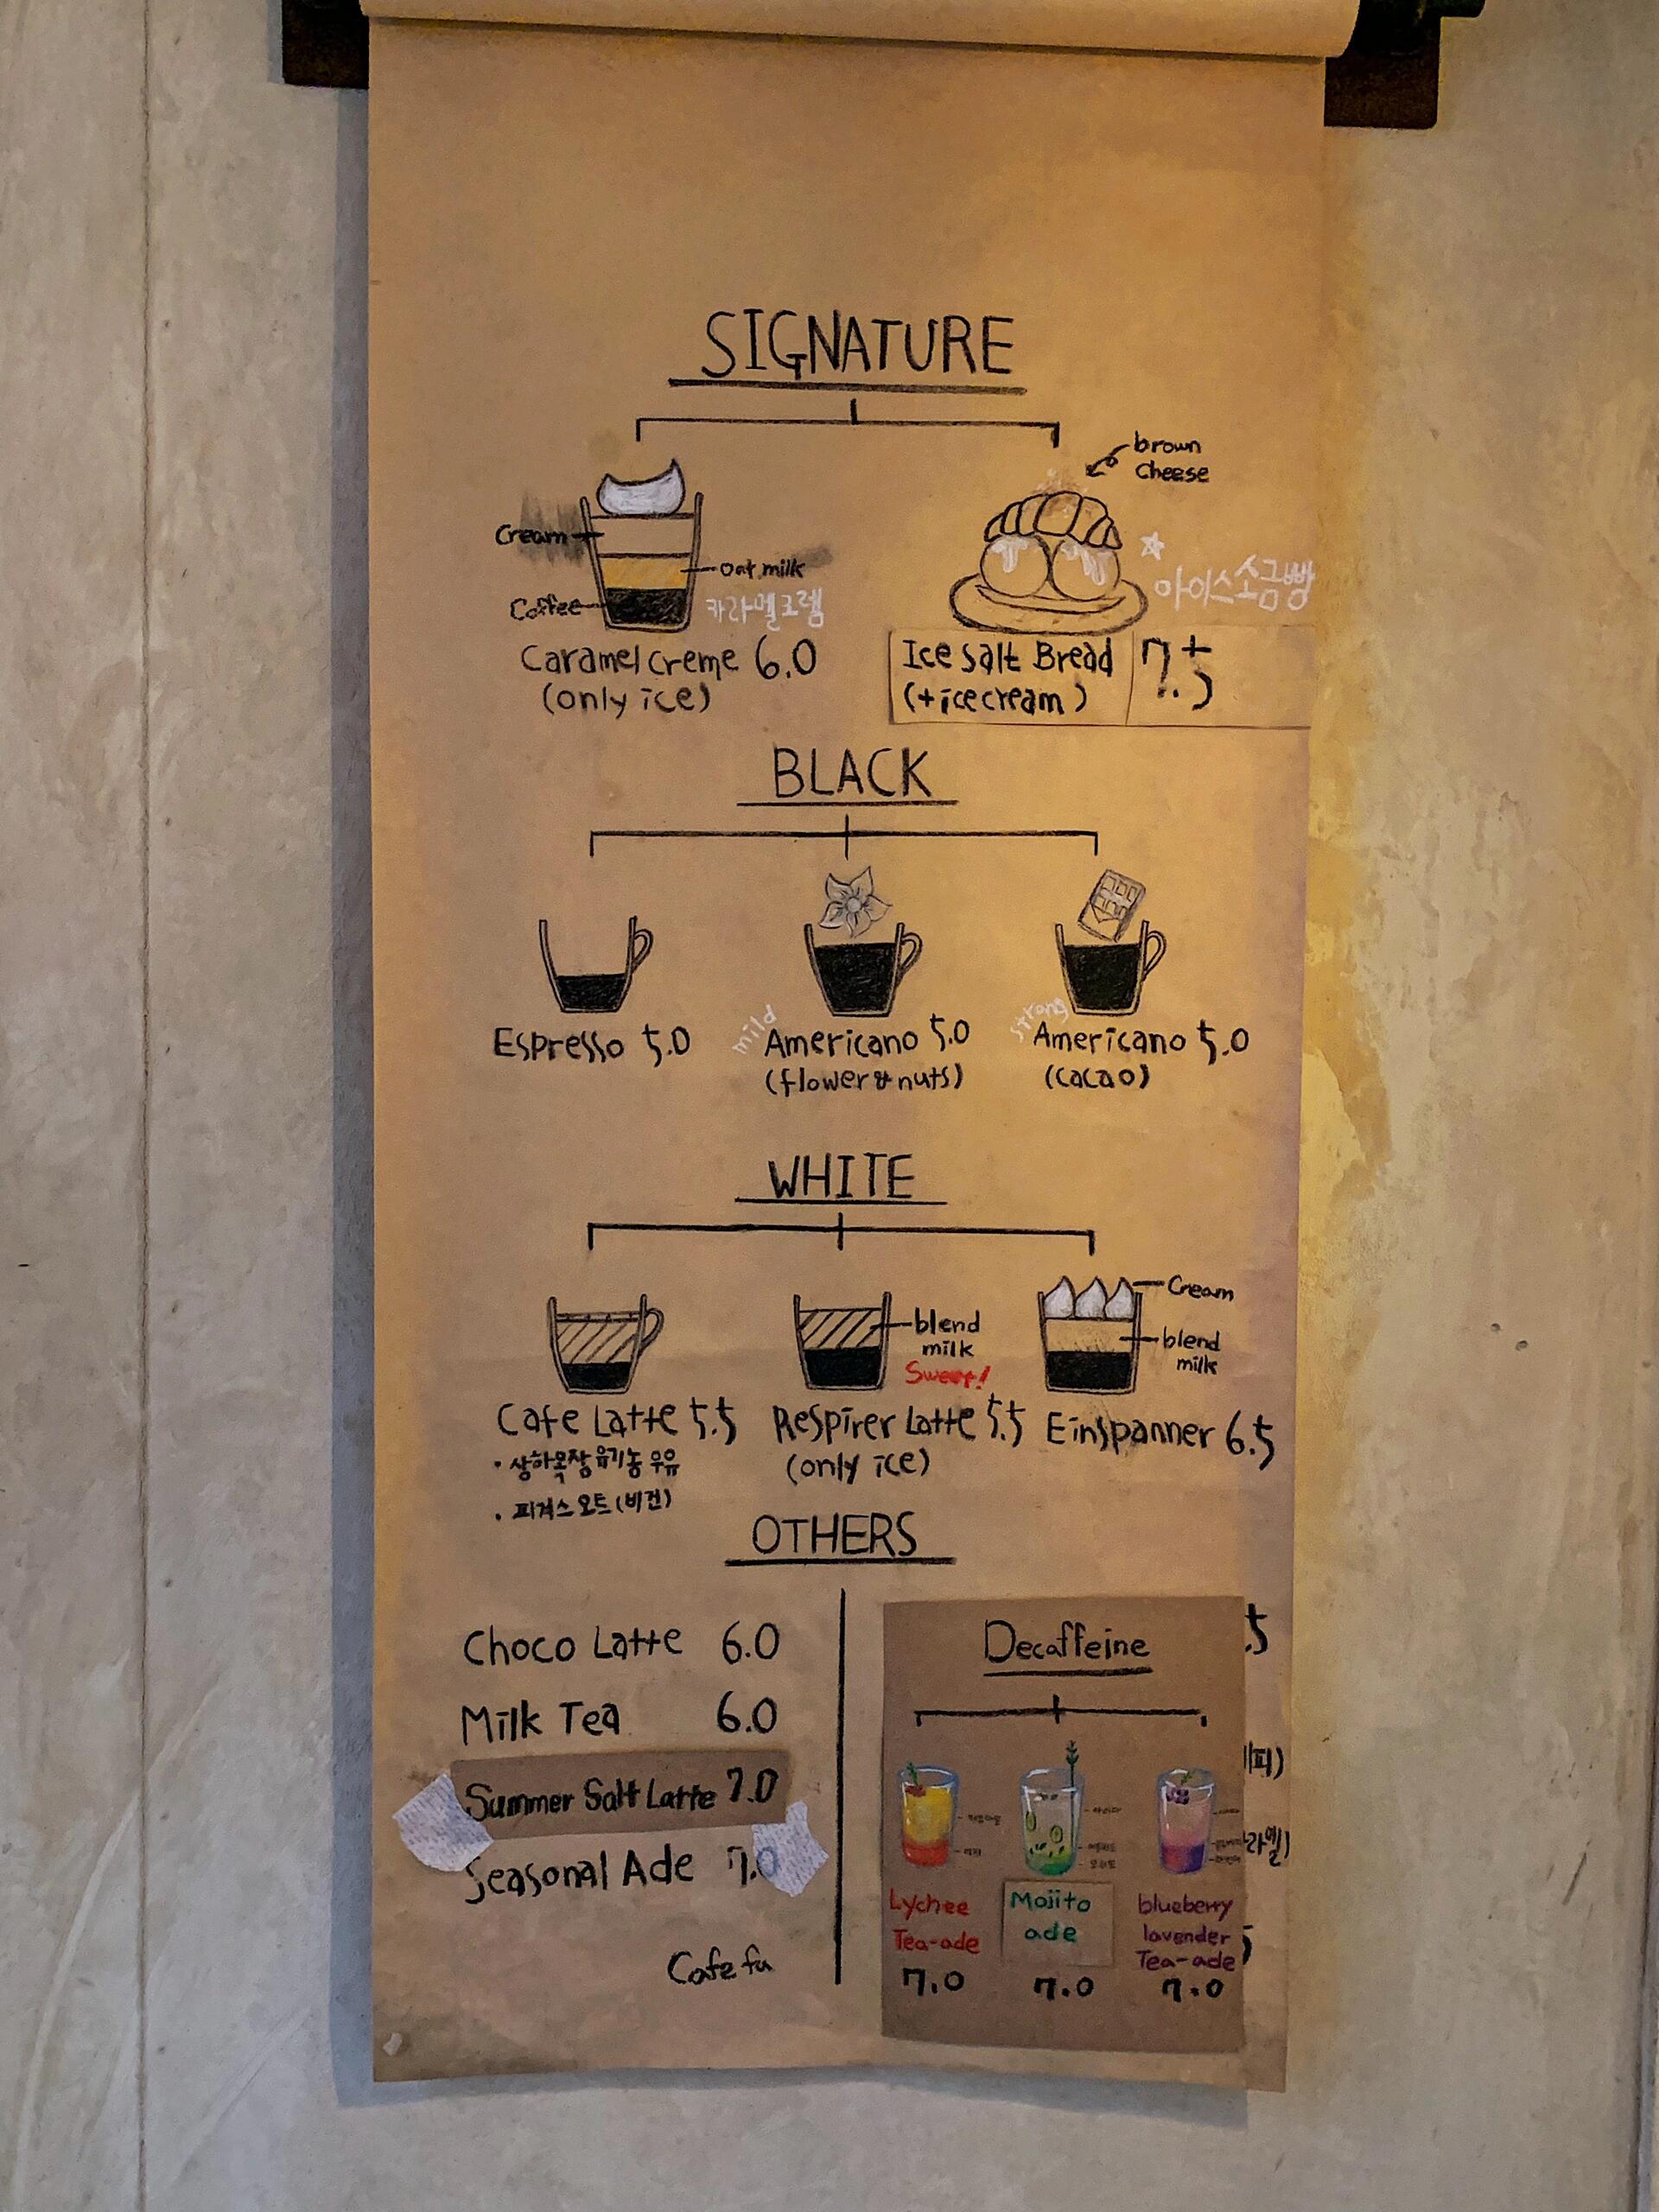 SIGNATURE
brown
cheese
Cream
oat milk
Coffee
카라멜크렘
☆ 아이스소금빵
Caramel creme 6.0
(only ice)
Ice Salt Bread 7.5
(+icecream)
BLACK
Espresso 5.0
mild
Americano 5.0
(flower & nuts)
strong
Americano 5.0
(cacao)
WHITE
blend
milk
Sweet!
Cream
blend
milk
Cafe Latte 5.5
· 상하목장 유기농 우유
· 피겨스 오트 (비건)
Respirer Latte 5.5
(only ice)
Einspanner 6.5
OTHERS
Choco Latte 6.0
Milk Tea 6.0
Summer Salt Latte 7.0
Seasonal Ade 7.0
Decaffeine
Lychee
Tea-ade
7.0
Mojito
ade
7.0
blueberry
lavender
Tea-ade
7.0